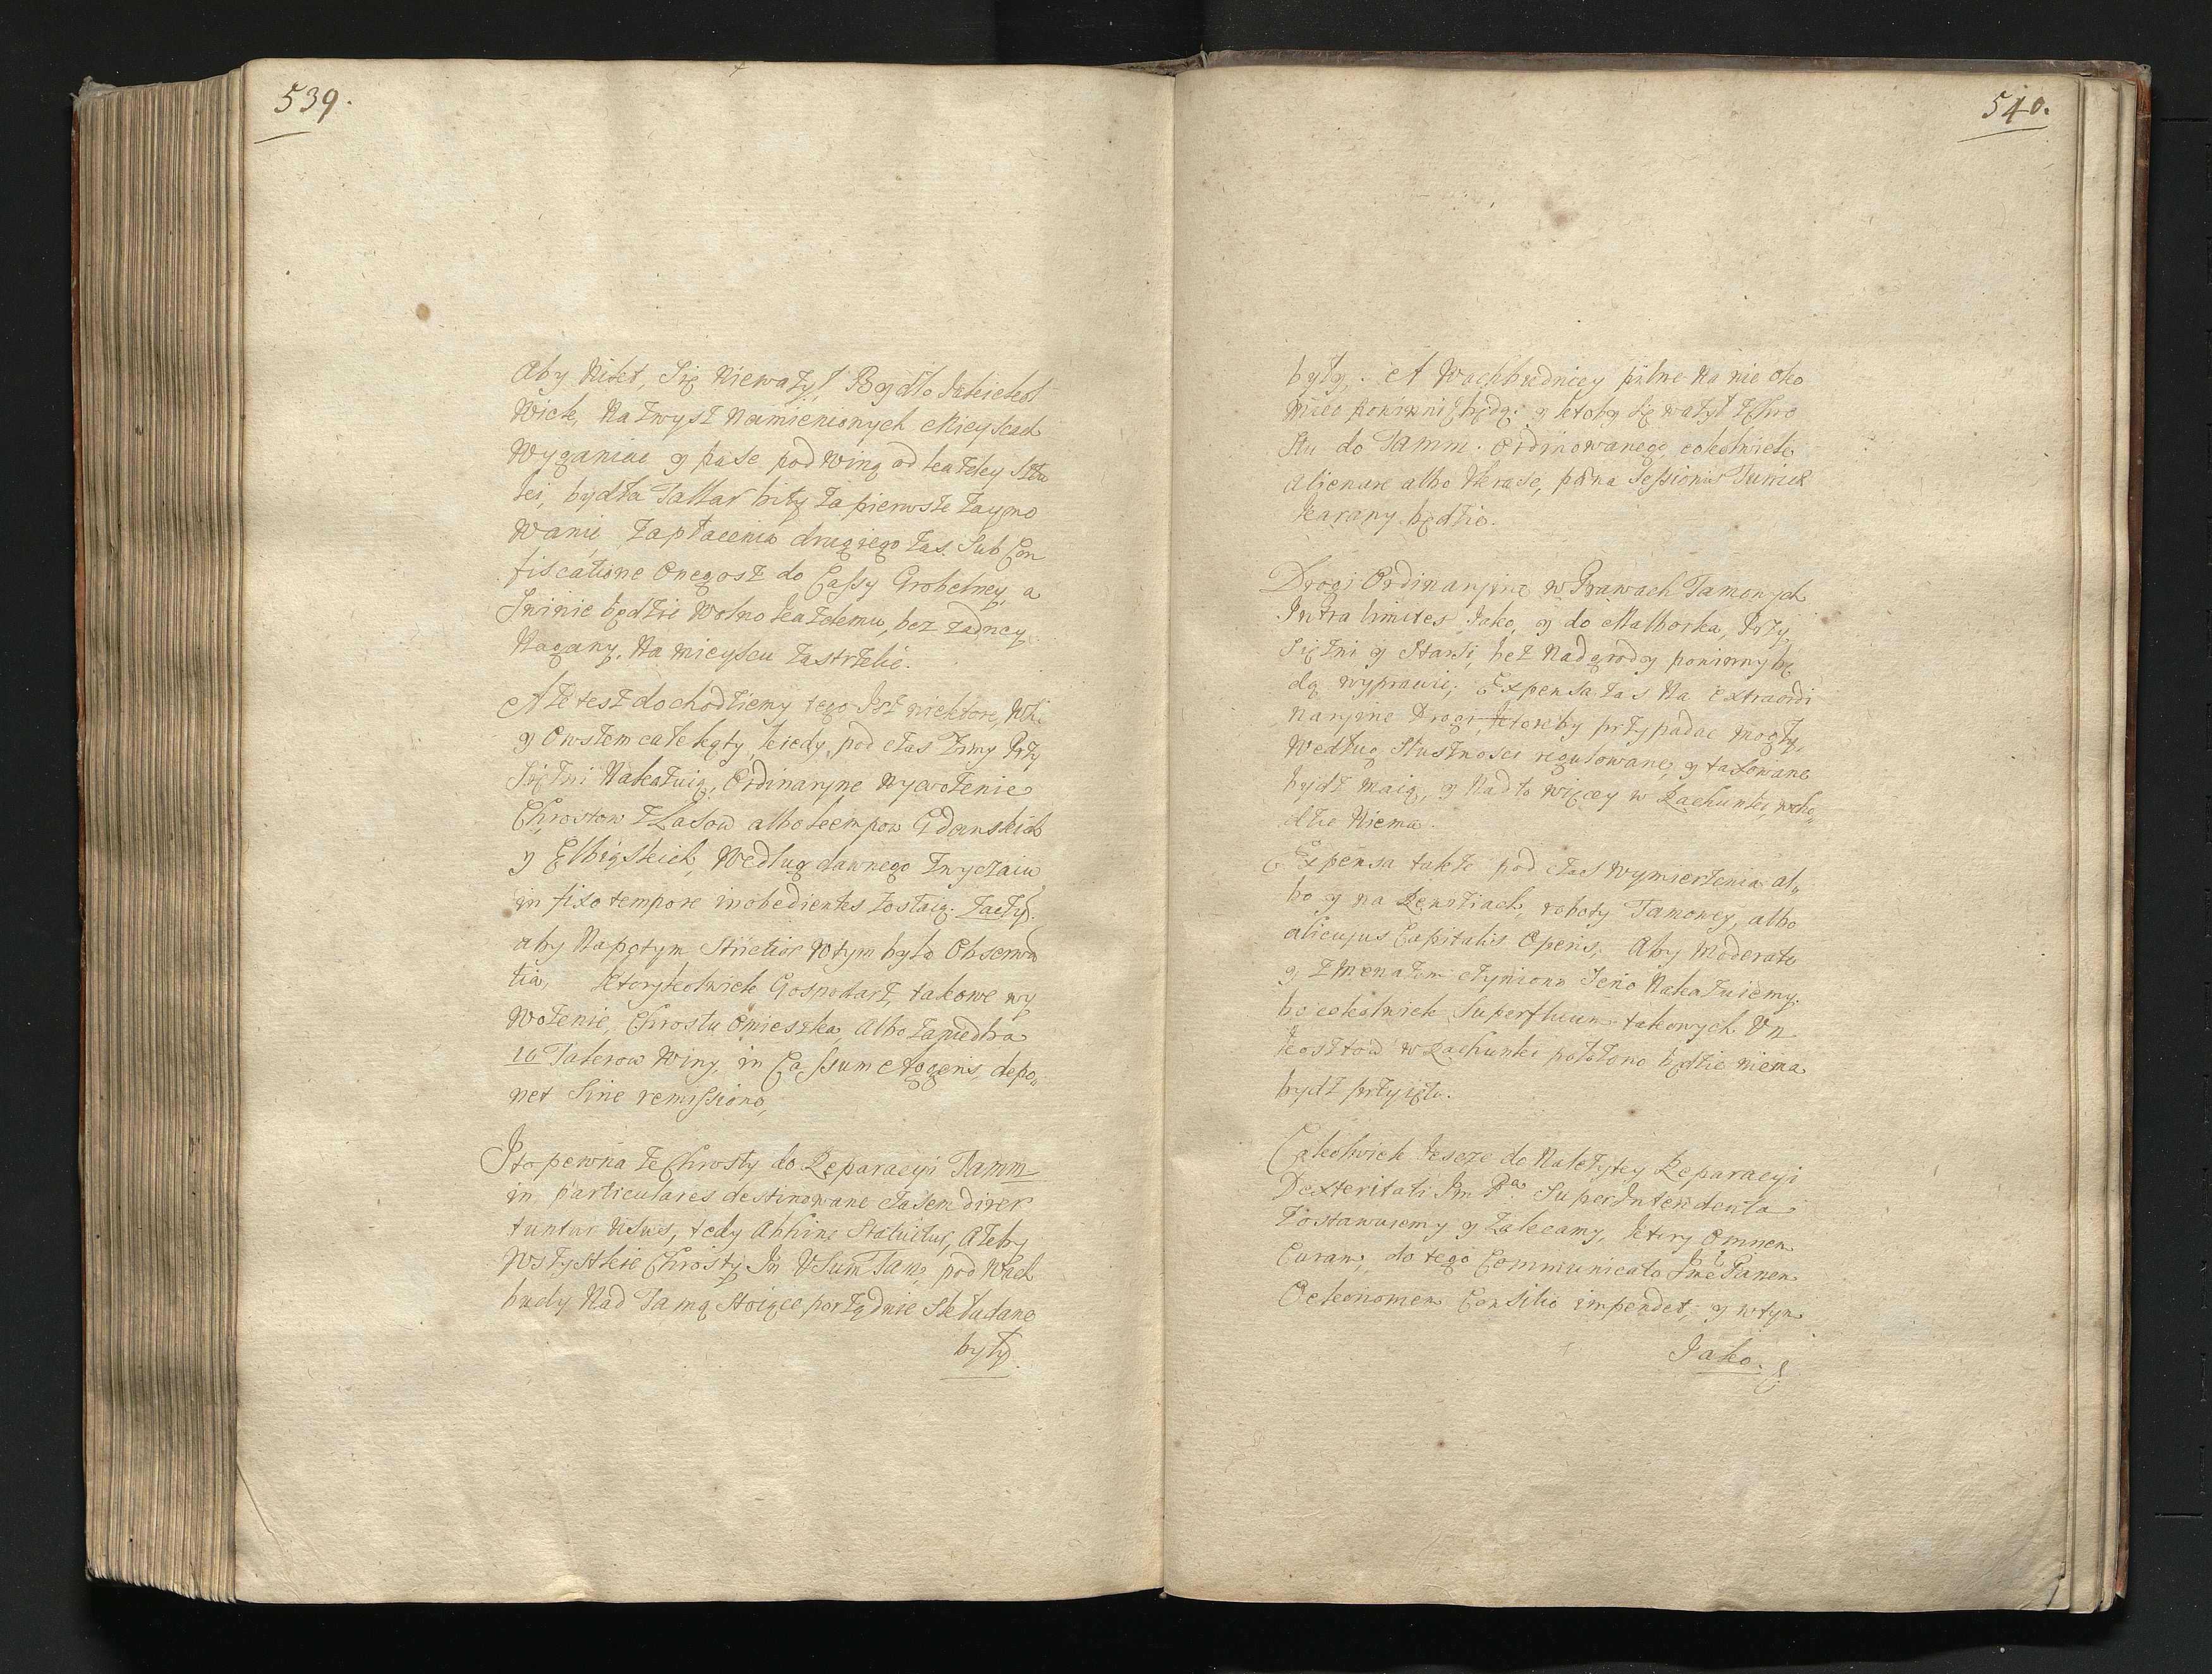 539.
Aby Nikt, Się Nieważył Bydło Jakiekol
Wiek, Na zwysz Namienionych Mieyscach
Wyganiac y pase pod Winą od każdey Sztu
ki, bydła Tallar bity za pierwsze zaymo
wanie zapłacenia drugiego zas. Sub Con
fiscatione Onegosz do Cassy Grobelney, a
Swinie będzie Wolno każdemu, bez żadney
Nagany, Na mieyscu zastrzelic.
A że tesz dochodziemy tego Isz niektore, Wsi
y Owszem całe kąty kiedy, pod czas Zimy Przy
Siężni Nakazuią, Ordinaryine Wywożenie
Chrostow z Lasow albo kempow Gdanskich
y Elbiąskich, Według dawnego Zwyczaiu
in fixo tempore inobedientes zostaią. Zaczym
aby Napotym Strictior Wtym była Obserwa
tia, ktorykolwiek Gospodarz, takowe wy
Wożenie, Chrostu Omieszka, Albo zaniedba
10 Talerow Winy, in Cassum Aggeris, depo„
net Sine remissione,
Isto pewna że Chrosty do Reparacyi Tamm
in particulares destinowane czasem diver
tuntur Usus, tedy Abhinc Statuitur, Ażeby
Wszystkie Chrosty In Usum Tam, pod Wach
budy Nad Tamą stoiące porządnie składane
były.
540.
były. A Wachbudnicy pilne Na nie oko
miec powinni będą; y ktoby się ważył z Chro
stu do Tamm. Ordinowanego cokolwiek
alienare albo Ukrase, pœna Sessionis Turris
karany będzie.
Drogi Ordinaryine w Prawach Tamowych
Intra limites Jako, y do Malborka, Przy
Siężni y Starsi, bez Nadgrody powinny bę
dą wyprawic; Expensa zas Na Extraordi
naryine Drogi, ktoreby przypadac mogły,
Według, Słusznosci regulowane, y taxowane
bydz maią, y Nad to więcey w Rachunki, wcho„
dzic Niema.
Expensa także pod czas Wymierzenia al„
bo y na Rewiziach, roboty Tamowey, albo
alicujus Capitalis Operis, Aby Moderate
y z menażem czyniona Serio Nakazuiemy.
bo cokolwiek Superfluum takowych Un
kosztow w Rachunki położono będzie niema
bydz przyięto.
Cokolwiek Jeszcze do Należytey Reparacyi
Dexteritati Jm Pa SuperIntendenta
Zostawuiemy y Zalecamy, ktory Omnem
Curam, do tego Communicato Jmc Panem
Oekonomem Consilio impendet, y wtym
Jako.